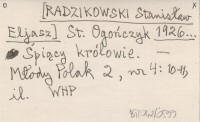 [RADZIKOWSKI Stanisław
Eljasz] St. Ogończyk 1926...
Śpiący królowie. —
Młody Polak 2, nr 4: 10-11,
il. WHP